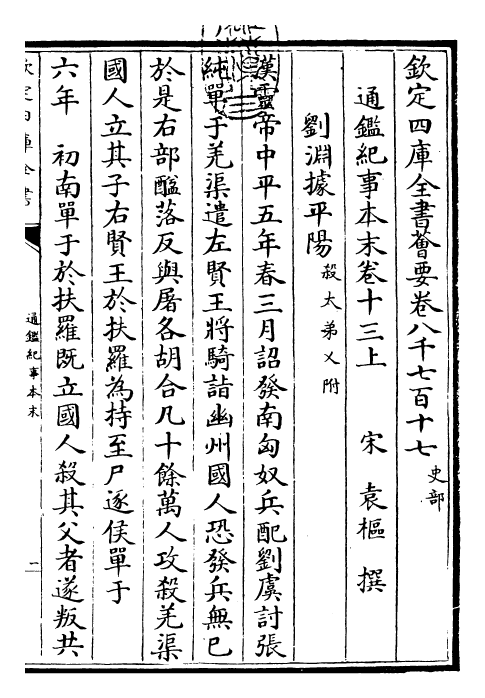 欽定四庫全書薈要卷八千七百十七 史部
通鑑紀事本末卷十三上 宋 袁樞 撰
劉淵據平陽 殺太弟乂附
漢靈帝中平五年春三月詔發南匈奴兵配劉虞討張
純單于羌渠遣左賢王將騎詣幽州國人恐發兵無已
於是右部䤈落反與屠各胡合凡十餘萬人攻殺羌渠
國人立其子右賢王於扶羅為持至尸逐侯單于
六年 初南單于於扶羅既立國人殺其父者遂叛共
欽定四庫全書
通鑑紀事本末
一